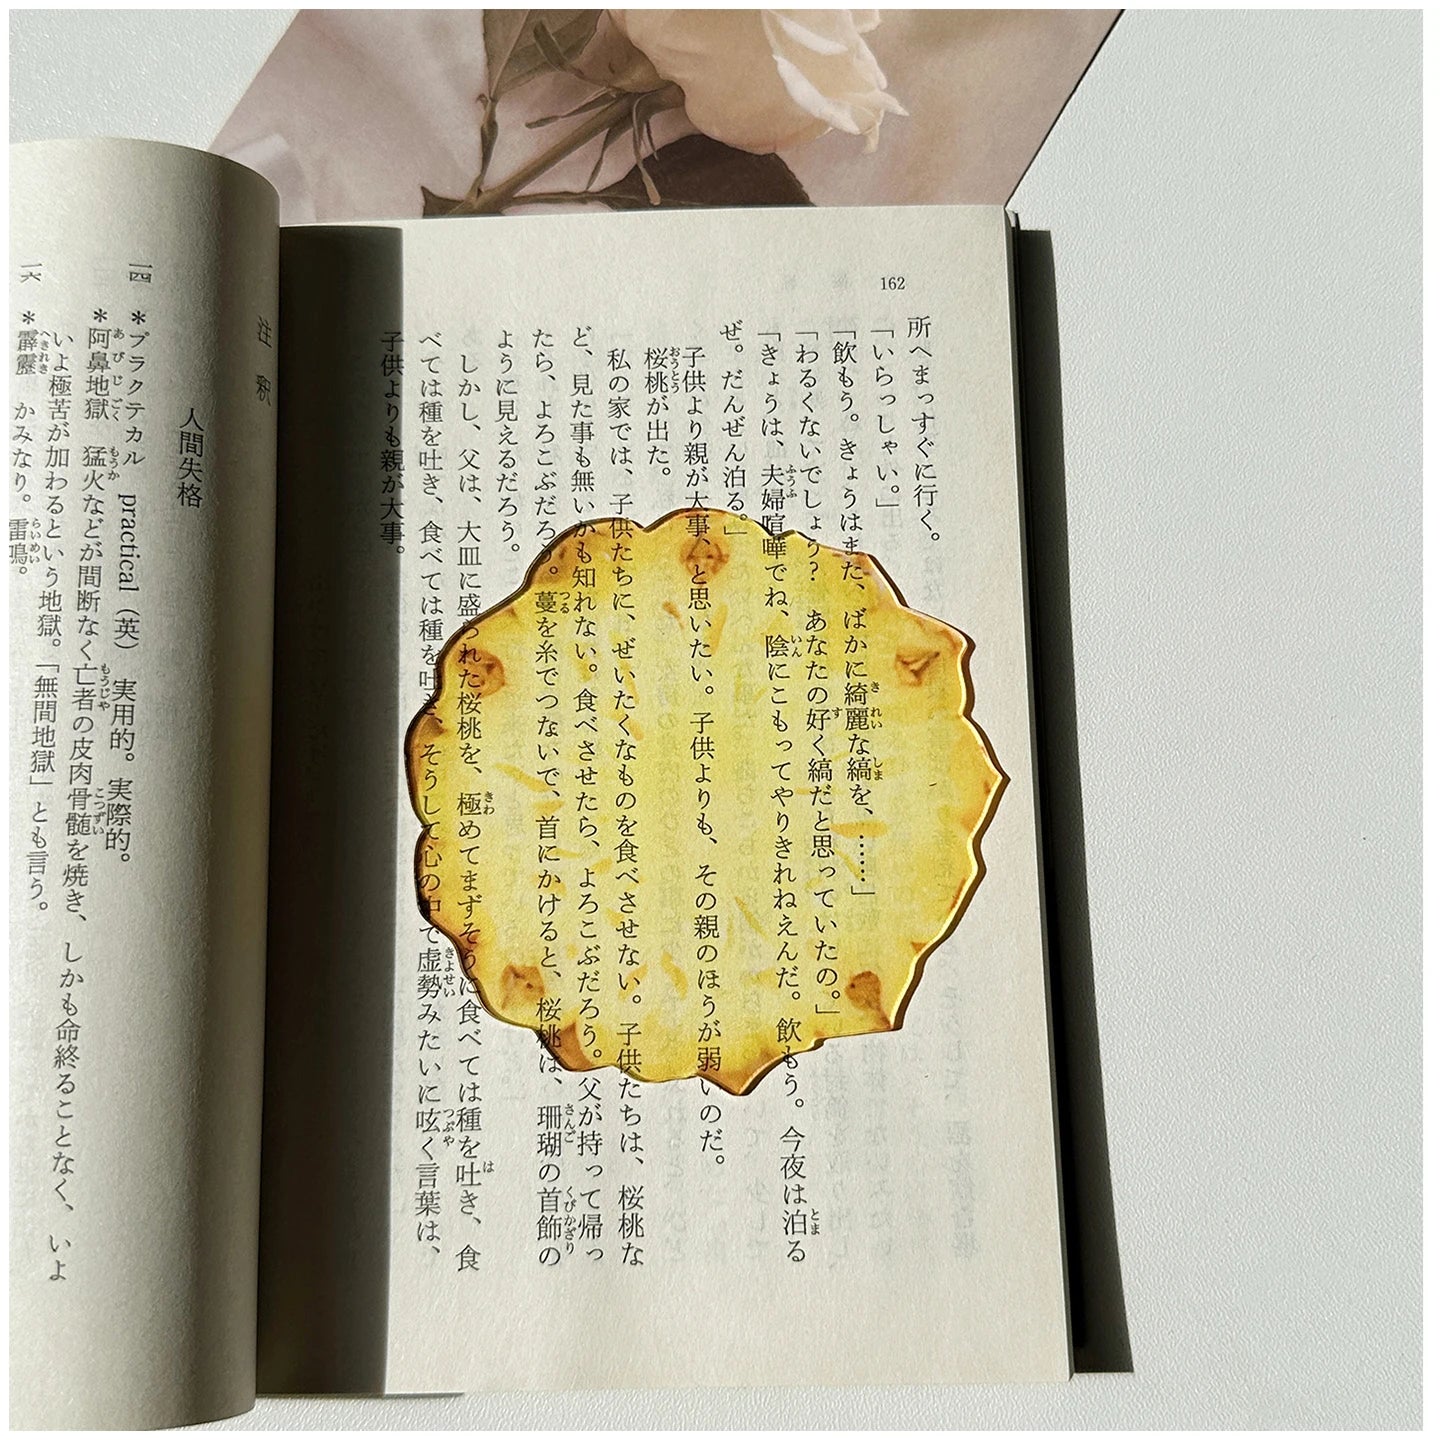 162
所へまっすぐに行く。
「いらっしゃい。」
「飲もう。きょうはまた、ばかに綺麗な縞を、……」
「わるくないでしょう？　あなたの好く縞だと思っていたの。」
「きょうは、夫婦喧嘩でね、陰にこもってやりきれねえんだ。飲もう。今夜は泊る
ぜ。だんぜん泊る。」
子供より親が大事、と思いたい。子供よりも、その親のほうが弱いのだ。
桜桃が出た。
私の家では、子供たちに、ぜいたくなものを食べさせない。子供たちは、桜桃な
ど、見た事も無いかも知れない。食べさせたら、よろこぶだろう。父が持って帰っ
たら、よろこぶだろう。蔓を糸でつないで、首にかけると、桜桃は、珊瑚の首飾の
ように見えるだろう。
しかし、父は、大皿に盛られた桜桃を、極めてまずそうに食べては種を吐き、食
べては種を吐き、食べては種を吐き、そうして心の中で虚勢みたいに呟く言葉は、
子供よりも親が大事。
注釈
人間失格
一四　＊プラクテカル　practical（英）　実用的。実際的。
＊阿鼻地獄　猛火などが間断なく亡者の皮肉骨髄を焼き、しかも命終ることなく、いよ
いよ極苦が加わるという地獄。「無間地獄」とも言う。
一六　＊霹靂　かみなり。雷鳴。